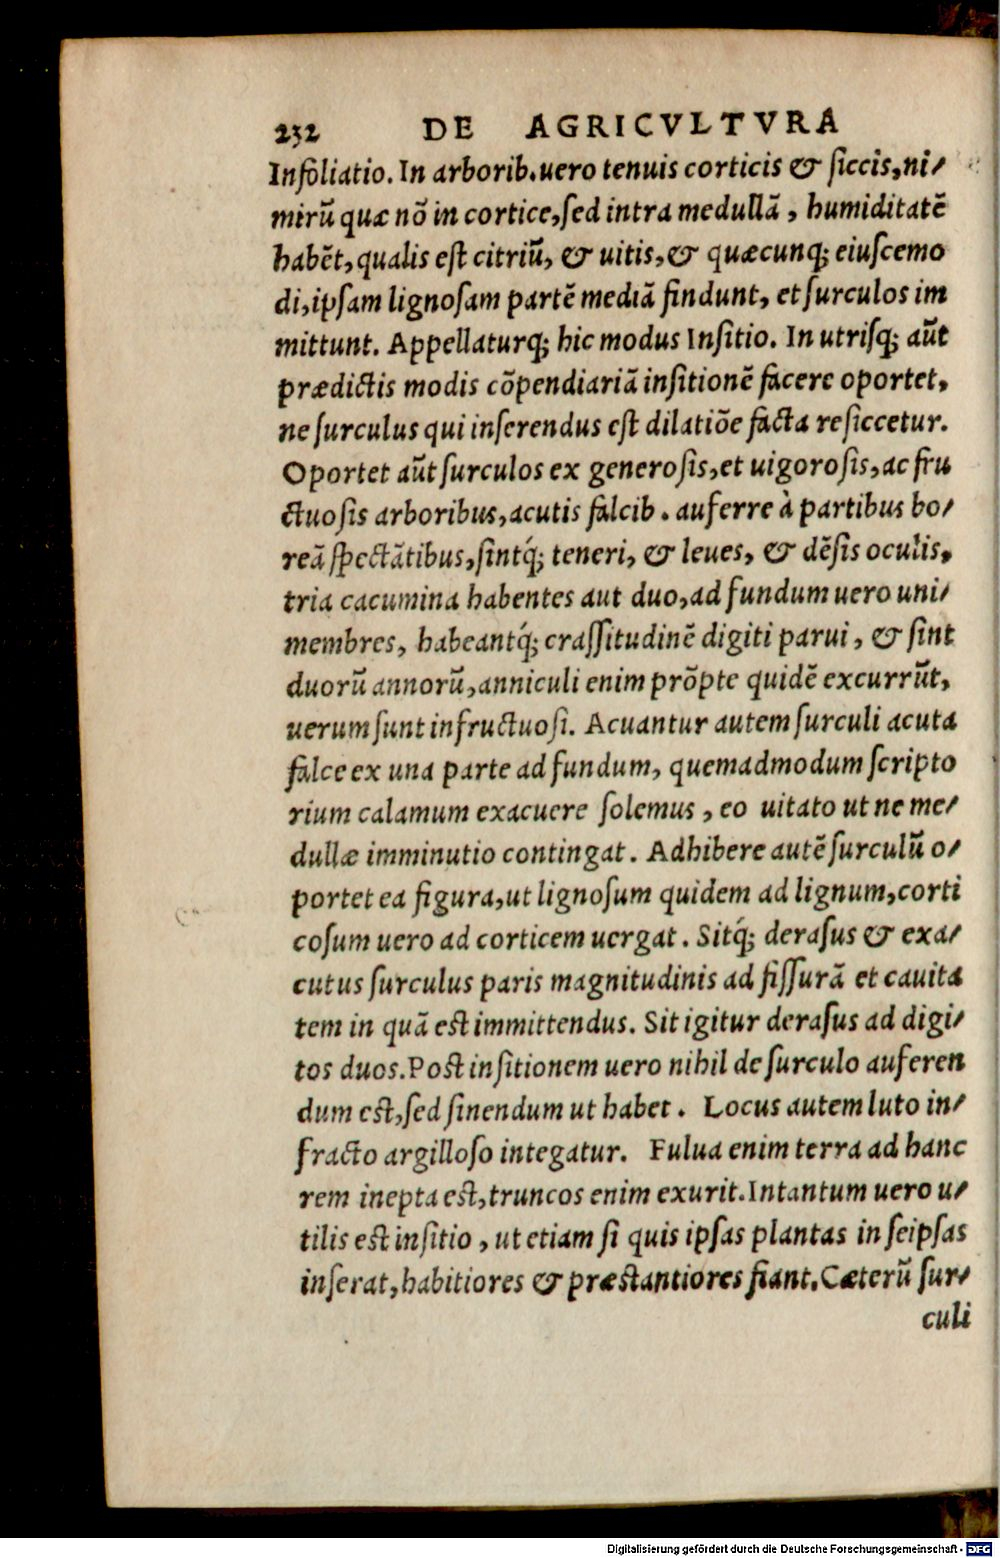 232 DE AGRICVLTVRA
Infoliatio. In arborib. uero tenuis corticis & ſiccis, ni/
mirũ quæ nõ in cortice, ſed intra medullã, humiditatẽ
habẽt, qualis eſt citriũ, & uitis, & quæcunq; eiuſcemo
di, ipſam lignoſam partẽ mediã findunt, et ſurculos im
mittunt. Appellaturq; hic modus Inſitio. In utriſq; aũt
prædictis modis cõpendiariã inſitionẽ facere oportet,
ne ſurculus qui inſerendus eſt dilatiõe facta reſiccetur.
Oportet aũt ſurculos ex generoſis, et uigoroſis, ac fru
ctuoſis arboribus, acutis falcib. auferre à partibus bo/
reã ſpectãtibus, ſintq́; teneri, & leues, & dẽſis oculis,
tria cacumina habentes aut duo, ad fundum uero uni/
membres, habeantq́; craſſitudinẽ digiti parui, & ſint
duorũ annorũ, anniculi enim prõpte quidẽ excurrũt,
uerum ſunt infructuoſi. Acuantur autem ſurculi acuta
falce ex una parte ad fundum, quemadmodum ſcripto
rium calamum exacuere ſolemus, eo uitato ut ne me/
dullæ imminutio contingat. Adhibere autẽ ſurculũ o/
portet ea figura, ut lignoſum quidem ad lignum, corti
coſum uero ad corticem uergat. Sitq́; deraſus & exa/
cutus ſurculus paris magnitudinis ad fiſſurã et cauita
tem in quã eſt immittendus. Sit igitur deraſus ad digi/
tos duos. Poſt inſitionem uero nihil de ſurculo auferen
dum eſt, ſed ſinendum ut habet. Locus autem luto in/
fracto argilloſo integatur. Fulua enim terra ad hanc
rem inepta eſt, truncos enim exurit. Intantum uero u/
tilis eſt inſitio, ut etiam ſi quis ipſas plantas in ſeipſas
inſerat, habitiores & præſtantiores fiant. Cæterũ ſur/
culi
Digitalisierung gefördert durch die Deutsche Forschungsgemeinschaft - DFG